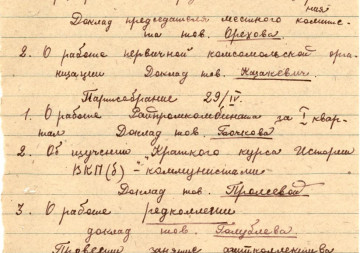 ная
Доклад председателя местного комите-
та тов. Орехова.
2. О работе первичной комсомольской орга-
низации Доклад тов.
Партсобрание 29/IV.
1. О работе Райпромкомбината за I квар-
тал Доклад тов. Бочкова
2. Об изучении "Краткого курса Истории
ВКП(б) - коммунистами
Доклад тов.
3. О работе редколлегии
доклад тов. Голублева
Провести занятие